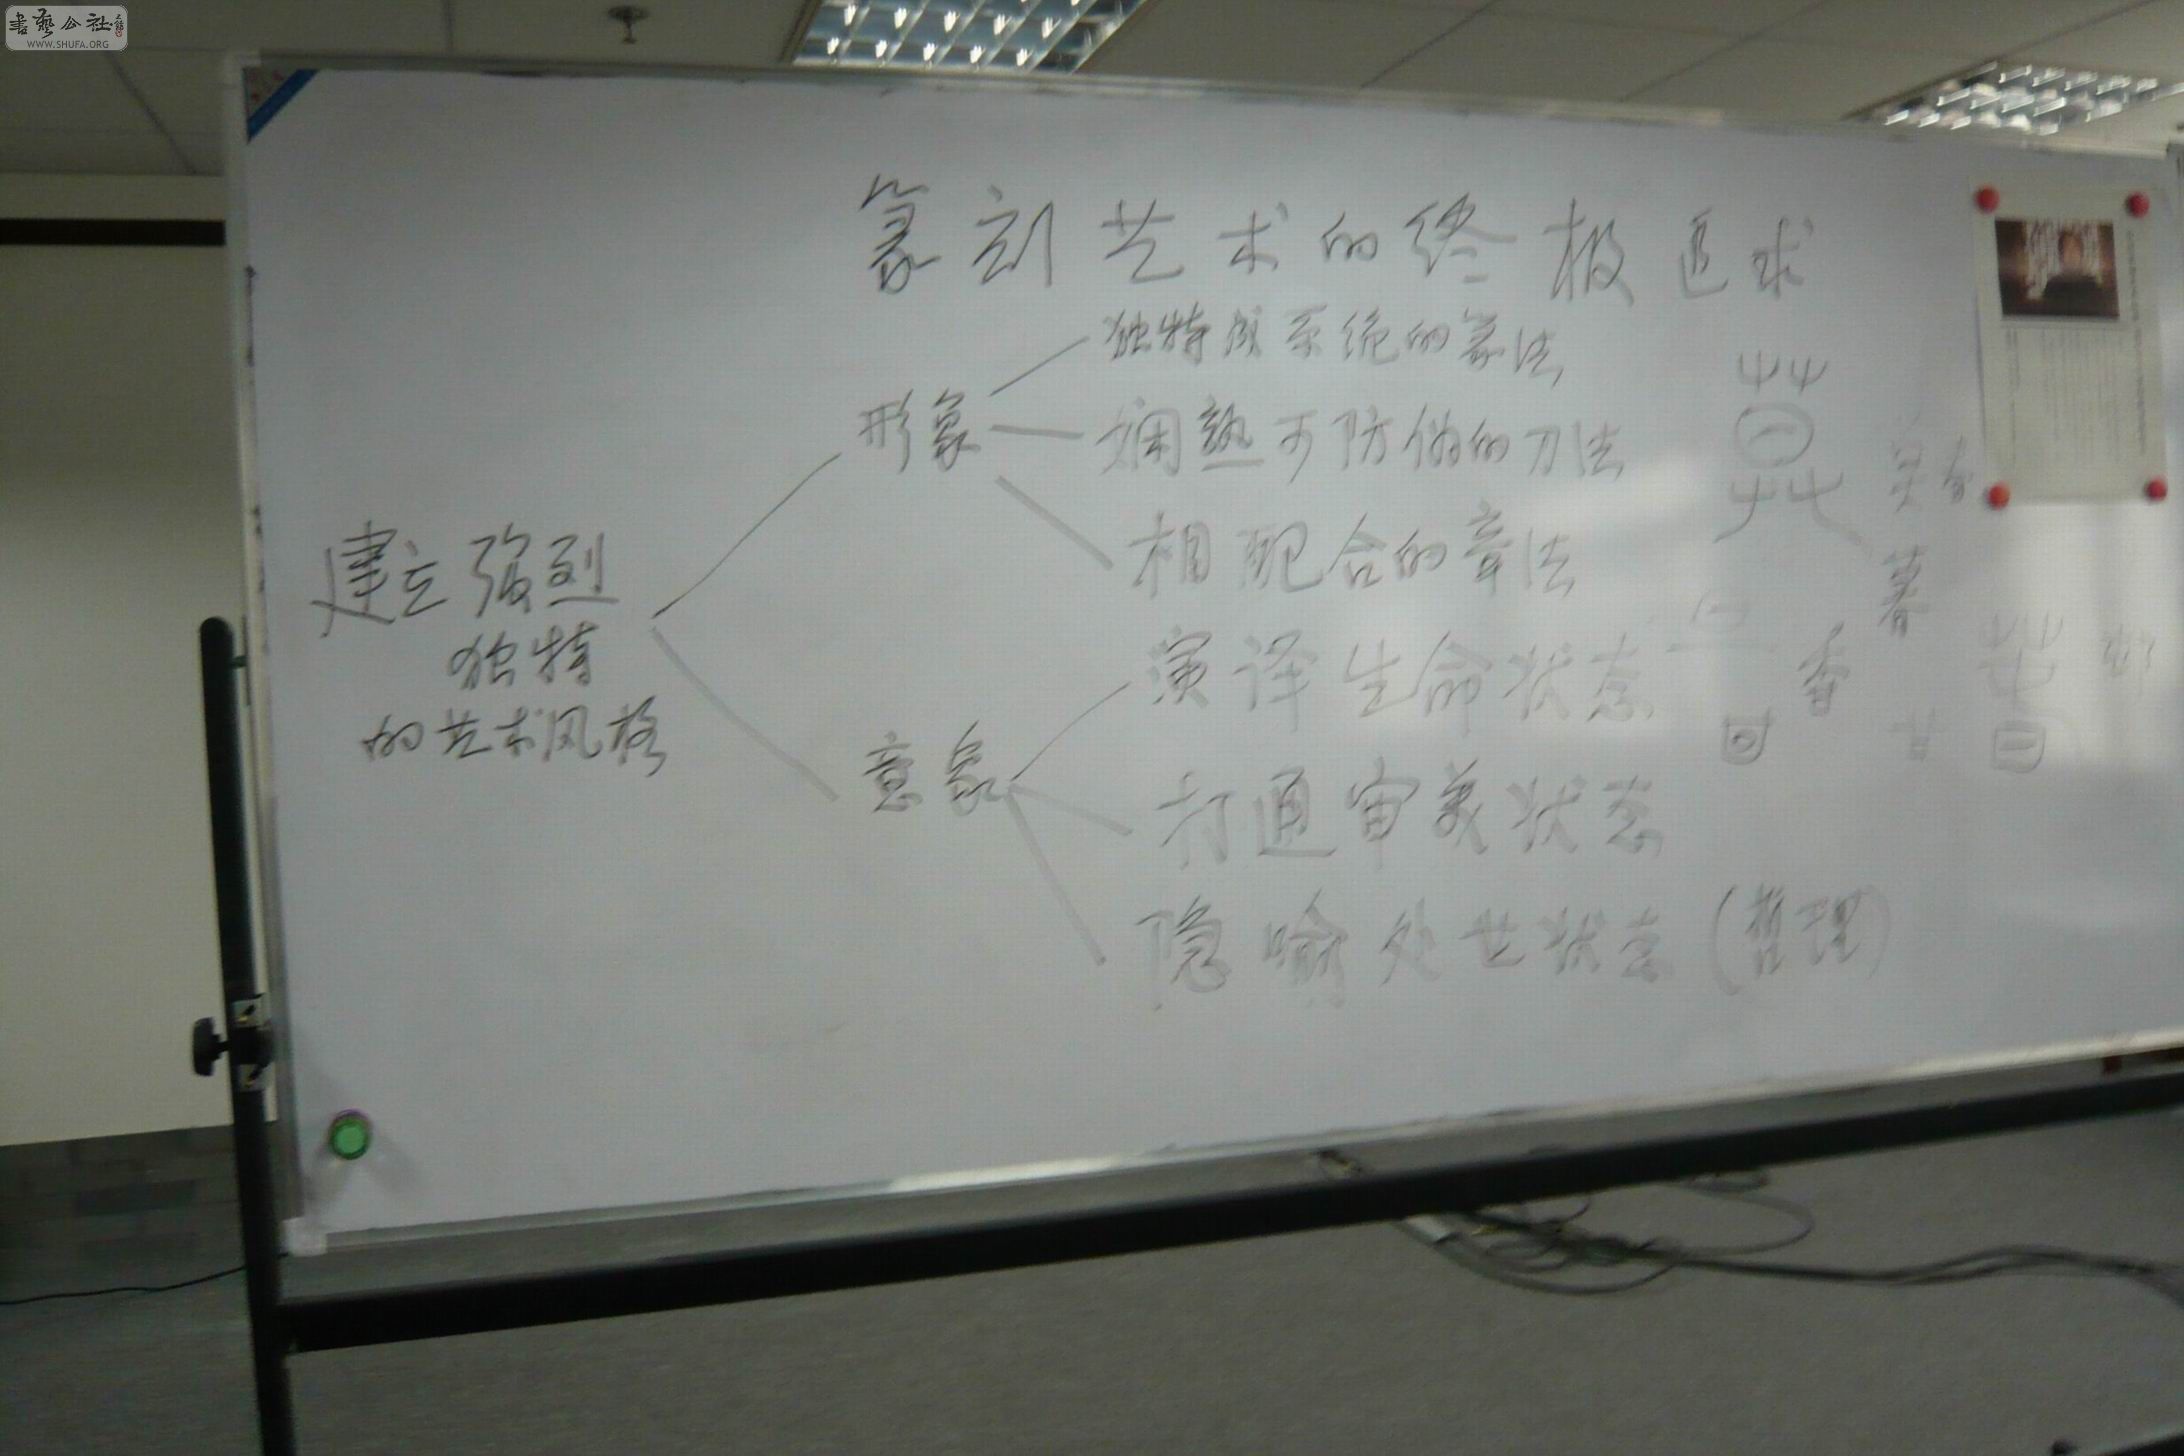 書藝公社
WWW.SHUFA.ORG
篆刻艺术的终极追求
建立强烈
独特
的艺术风格
形象
独特成系统的篆法
娴熟可防伪的刀法
相配合的章法
意象
演译生命状态
打通审美状态
隐喻处世状态(哲理)
香
暮